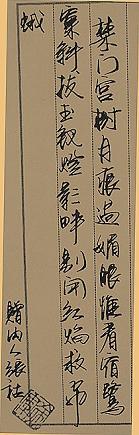 禁门宫树月痕过媚眼唯看宿鹭
窠斜拔玉钗灯影畔剔开红焰救飞
蛾
赠内人张祜